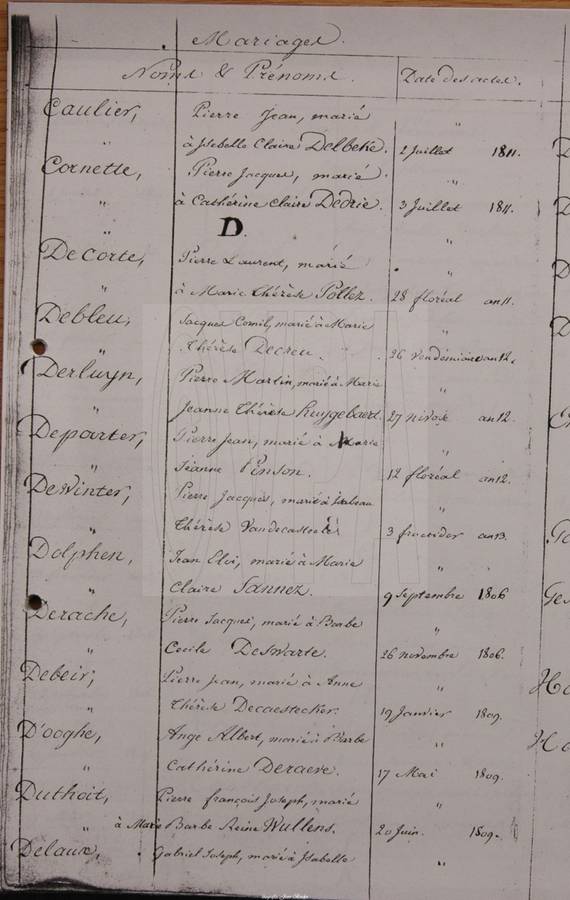 Mariages.
Noms & Prénoms. Date des actes.
Caulier, Pierre Jean, marié "
à Isabelle Claire Delbeke. 2 Juillet 1811.
Cornette, Pierre Jacques, marié "
" à Cathérine Claire Dedrie. 3 Juillet 1811.
D.
DeCorte, Pierre Laurent, marié "
" à Marie Thérèse Pollez. 28 floréal an 11.
Debleu, Jacques Cornil, marié à Marie "
Thérèse Decreu. 26 Vendémiaire an 12.
Derluyn, Pierre Martin, marié à Marie "
" Jeanne Thérèse huygebaert. 27 nivose an 12.
Departer, Pierre Jean, marié à Marie "
" Jeanne Pinson. 12 floréal an 12.
DeWinter, Pierre Jacques, marié à Isabeau "
" Thérèse Vandecasteele 3 fructidor an 13.
Dolphen, Jean Eloi, marié à Marie "
" Claire Sannez. 9 Septembre 1806
Derache, Pierre Jacques, marié à Barbe "
" Cecile DeSwarte. 26 novembre 1806.
Debeir, Pierre Jean, marié à Anne "
" Thérèse Decaestecker. 19 Janvier 1809.
D'ooghe, Ange Albert, marié à Barbe "
" Cathérine Deraeve. 17 Mai 1809.
Duthoit, Pierre françois Joseph, marié "
" à Marie Barbe Reine Wullens. 20 Juin. 1809.
Delaux, Gabriel Joseph, marié à Isabelle "